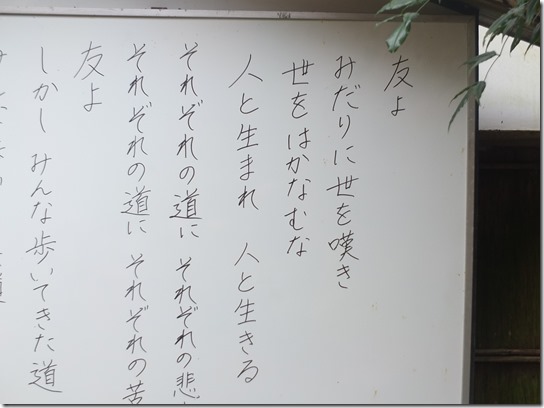 友よ
みだりに世を嘆き
世をはかなむな
人と生まれ 人と生きる
それぞれの道に それぞれの悲
それぞれの道に それぞれの苦
友よ
しかし みんな歩いてきた道